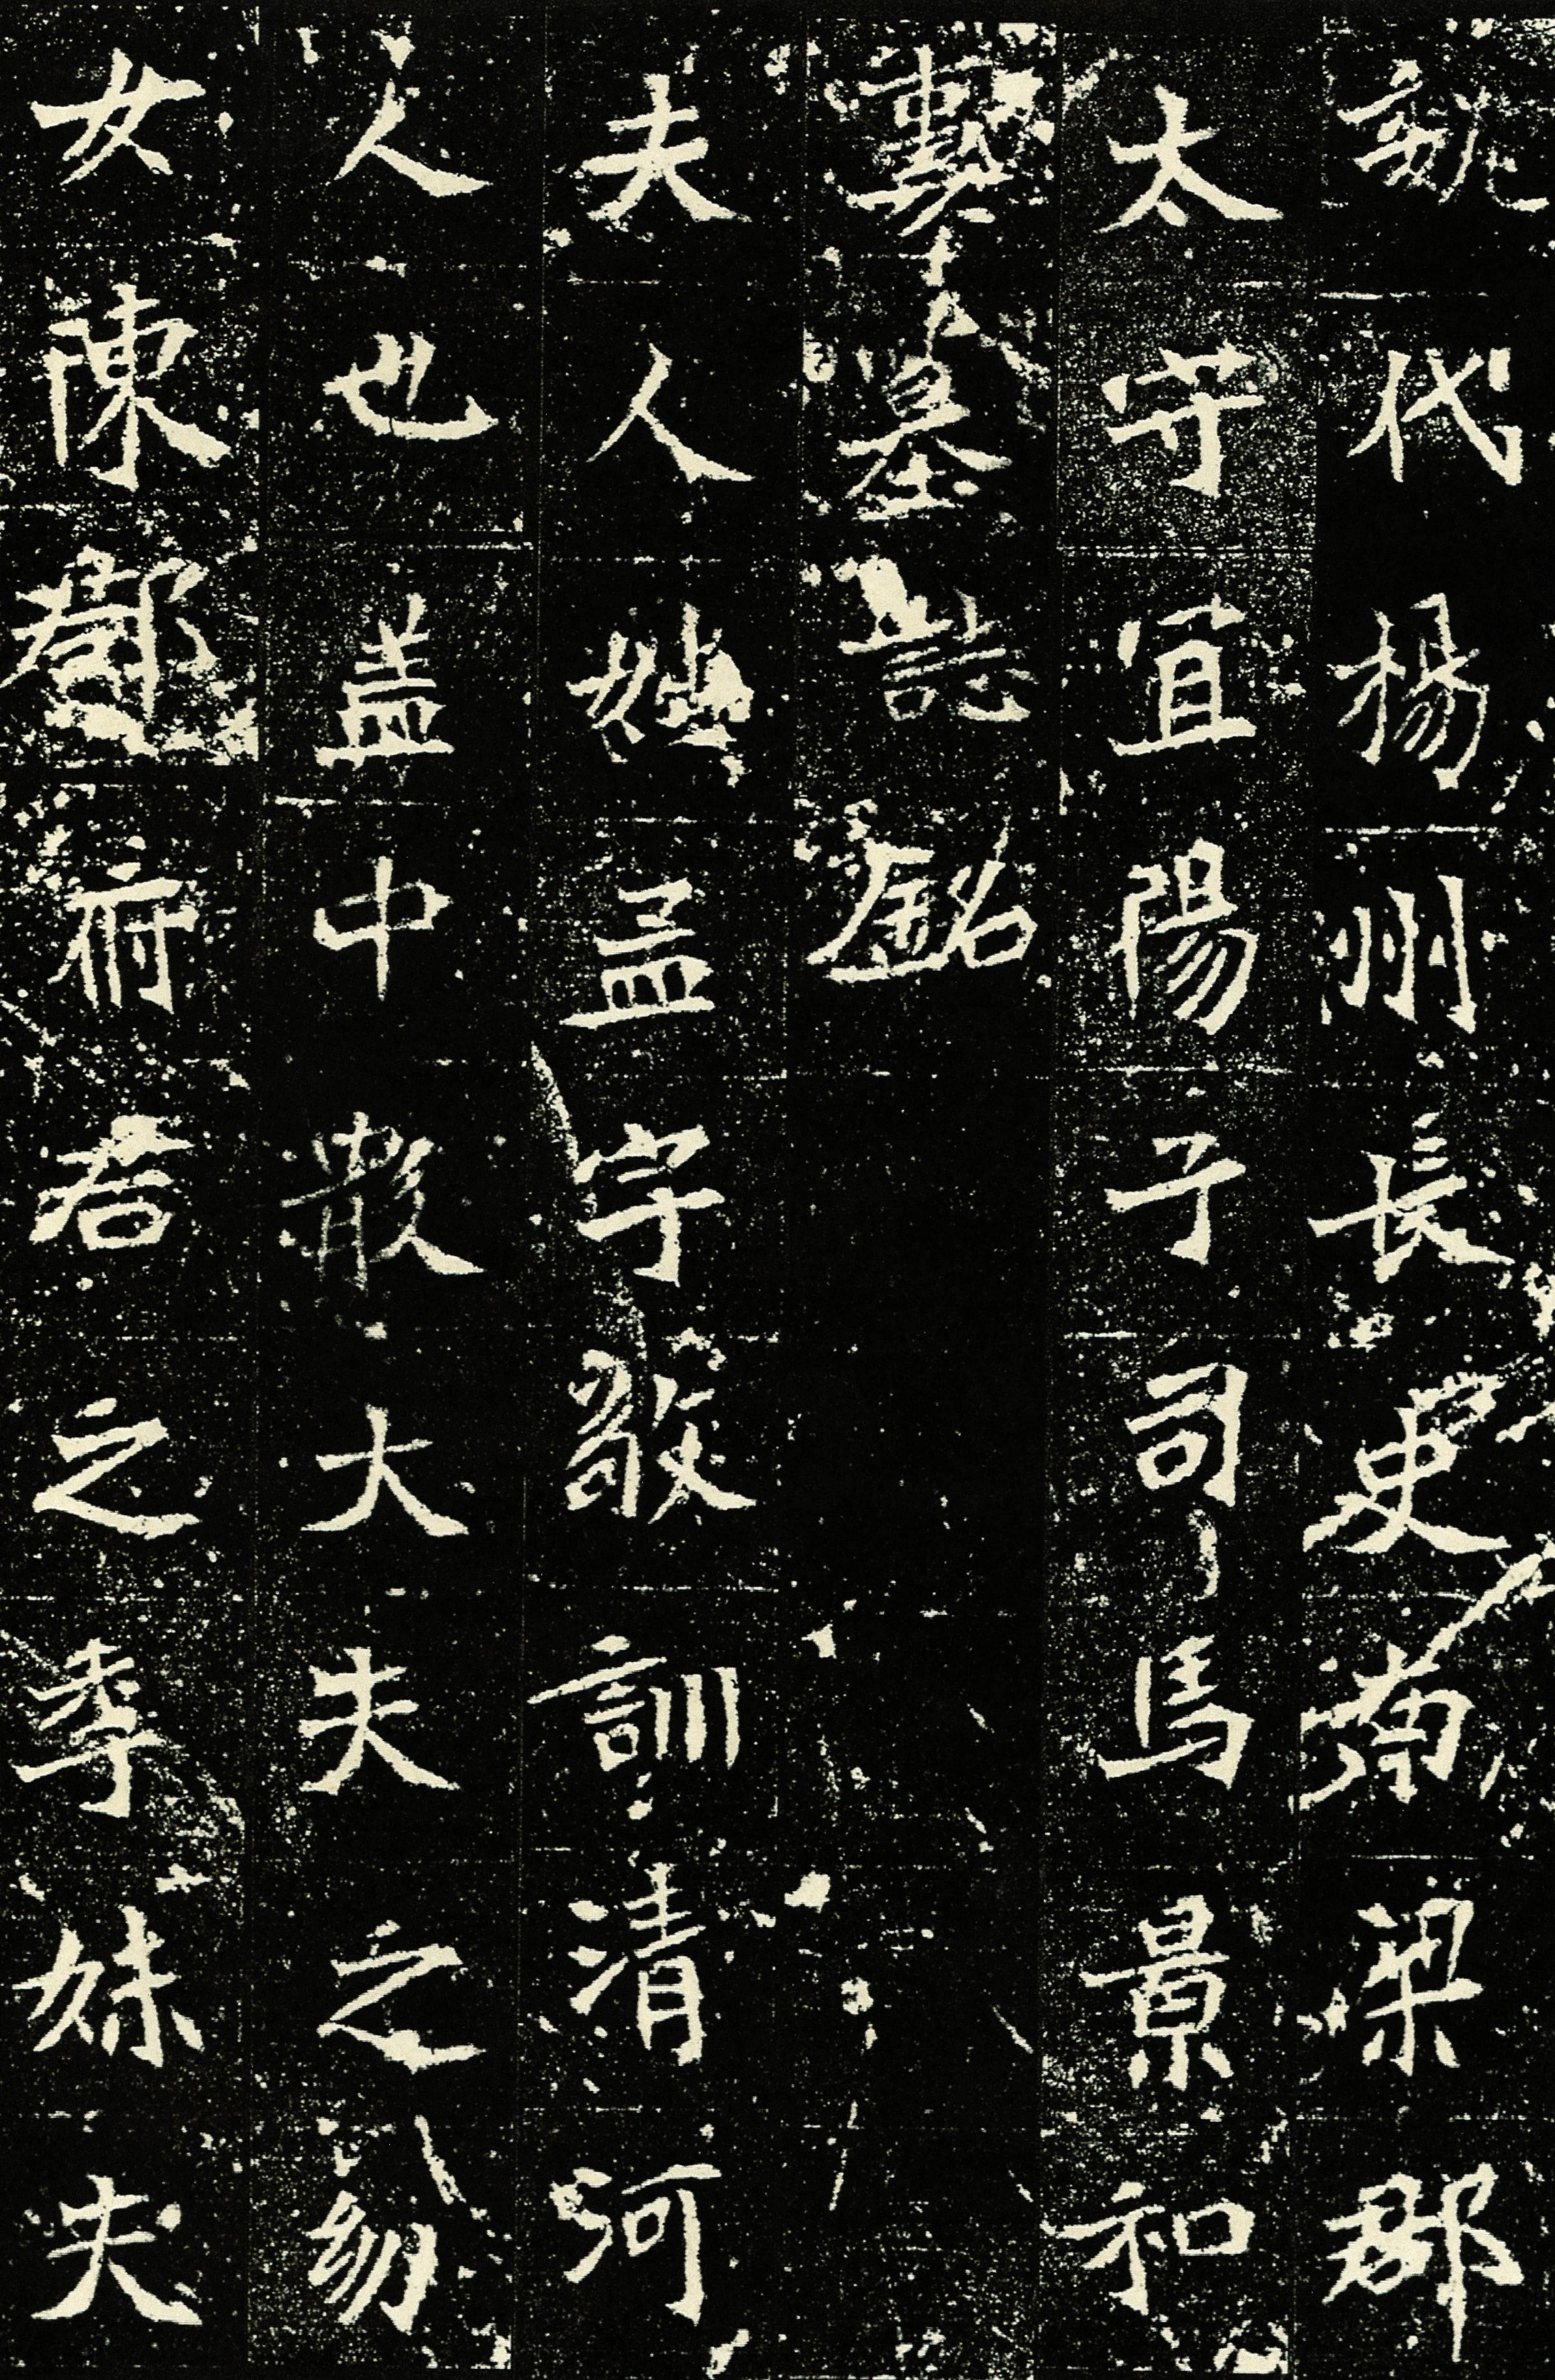 魏代楊州長史南梁郡
太守宜陽子司馬景和
妻墓誌銘
夫人姓孟字敬訓清河
人也盖中散大夫之幼
女陳郡府君之季妹夫